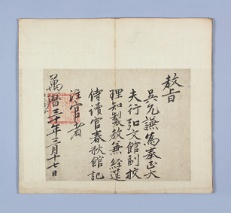 教旨
吳允謙爲奉正大
夫行弘文館副校
理知製敎兼經筵
侍讀官春秋館記
注官者
萬曆三十年三月十七日